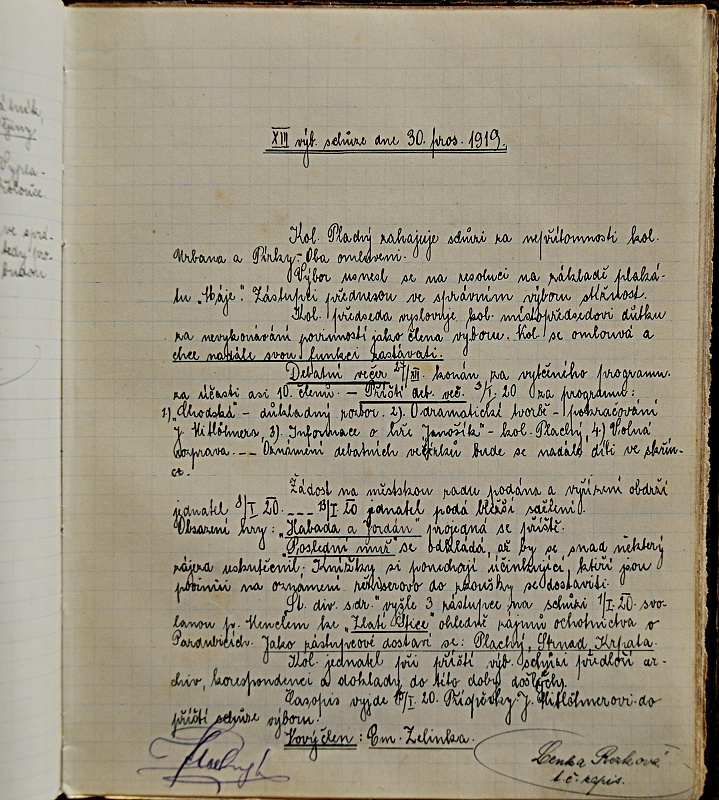 XIII výb. schůze dne 30. pros. 1919.
Kol. Pladný zahajuje schůzi za nepřítomnosti kol.
Urbana a Pírky-Oba omluveni.
Výbor usnesl se na resoluci na základě plaká-
tu „Máje". Zástupci přednesou ve správním výboru stížnost.
Kol. předseda vyslovuje kol. místopředsedovi důtku
za nevykonávání povinností jako člena výboru. Kol. se omlouvá a
chce nadále svou funkci zastávati.
Debatní večer 27/XII. konán za vytčeného programu
za účasti asi 10. členů. — Příští deb. več. 3/I. 20 za programu:
1) „Chodská" - důkladný rozbor. 2). O dramatické tvorbě - pokračování
J. Mitlöhmera, 3). Informace o hře „Janošík" - kol. Plachý, 4) Volná
rozprava. -- Oznámení debatních večírků bude se nadále díti ve skřín-
ce.
Žádost na městskou radu podána a vyřízení obdrží
jednatel 3/I 20. --- 13/I 20 jednatel podá bližší sdělení.
Obsazení hry: „Habada a Jordán" projedná se příště.
„Poslední muž" se odkládá, až by se snad některý
zájezd uskutečnil. Knížky si ponechají účinkující, kteří jsou
povinni na oznámení režiserovo do zkoušky se dostaviti.
„St. div. sdr." vyšle 3 zástupce na schůzi 1/I. 20. svo-
lanou p. Henclem ke „Zlaté Štice" ohledně zájmů ochotnictva v
Pardubicích. Jako zástupcové dostaví se: Plachý, Strnad, Krpata.
Kol. jednatel při příští výb. schůzi předloží ar-
chiv, korespondenci a doklady do této doby došlých.
Časopis vyjde 15/I. 20. Příspěvky J. Mitlöhmerovi do
příští schůze výboru.
Nový člen: Em. Zelinka.
Lenka Rezková
t. č. zapis.